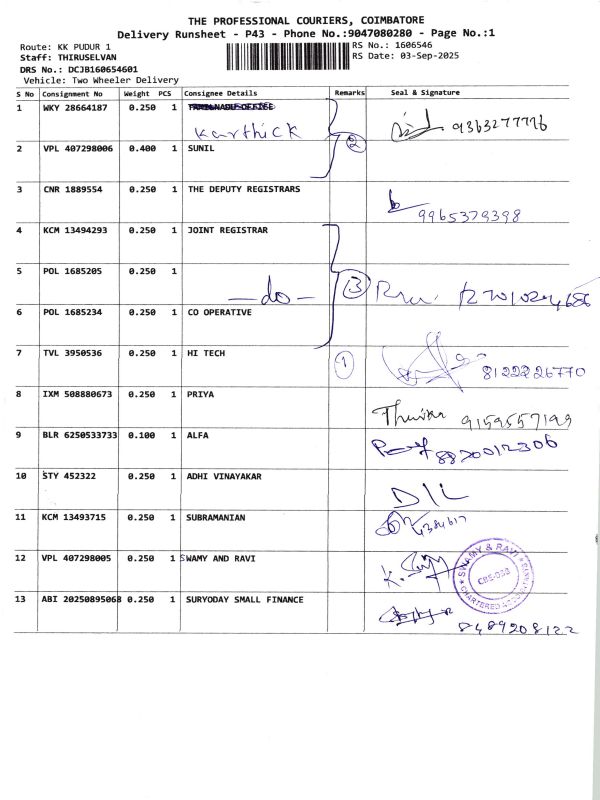 THE PROFESSIONAL COURIERS, COIMBATORE
Delivery Runsheet - P43 - Phone No.:9047080280 - Page No.:1
Route: KK PUDUR 1 RS No.: 1606546
Staff: THIRUSELVAN RS Date: 03-Sep-2025
DRS No.: DCJB160654601
Vehicle: Two Wheeler Delivery
S No Consignment No Weight PCS Consignee Details Remarks Seal & Signature
1 WKY 28664187 0.250 1
Karthick 9363277776
2 VPL 407298006 0.400 1 SUNIL 2
3 CNR 1889554 0.250 1 THE DEPUTY REGISTRARS
9965379398
4 KCM 13494293 0.250 1 JOINT REGISTRAR
5 POL 1685205 0.250 1
-do- 3
6 POL 1685234 0.250 1 CO OPERATIVE
7 TVL 3950536 0.250 1 HI TECH 1
8122226770
8 IXM 508880673 0.250 1 PRIYA
9159557199
9 BLR 6250533733 0.100 1 ALFA
8870012306
10 STY 452322 0.250 1 ADHI VINAYAKAR
D/L
11 KCM 13493715 0.250 1 SUBRAMANIAN
12 VPL 407298005 0.250 1 SWAMY AND RAVI
SWAMY & RAVI
CHARTERED ACCOUNTANTS
13 ABI 20250895068 0.250 1 SURYODAY SMALL FINANCE
8489208122